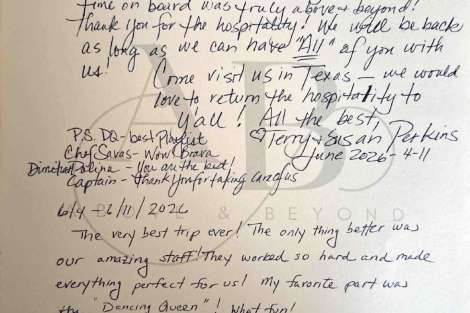 time on board was truly above & beyond!
Thank you for the hospitality! We will be back
as long as we can have "All" of you with
us!
Come visit us in Texas — we would
love to return the hospitality to
y'all! All the best,
Terry & Susan Perkins
June 2026 - 4-11
P.S. DQ - best Playlist
Chef Savas - Wow! Brava
Polina - You are the best!
Captain - Thank you for taking care of us
6/4 - 6/11/2026
& BEYOND
The very best trip ever! The only thing better was
our amazing staff! They worked so hard and made
everything perfect for us! My favorite part was
the "Dancing Queen"! What fun!